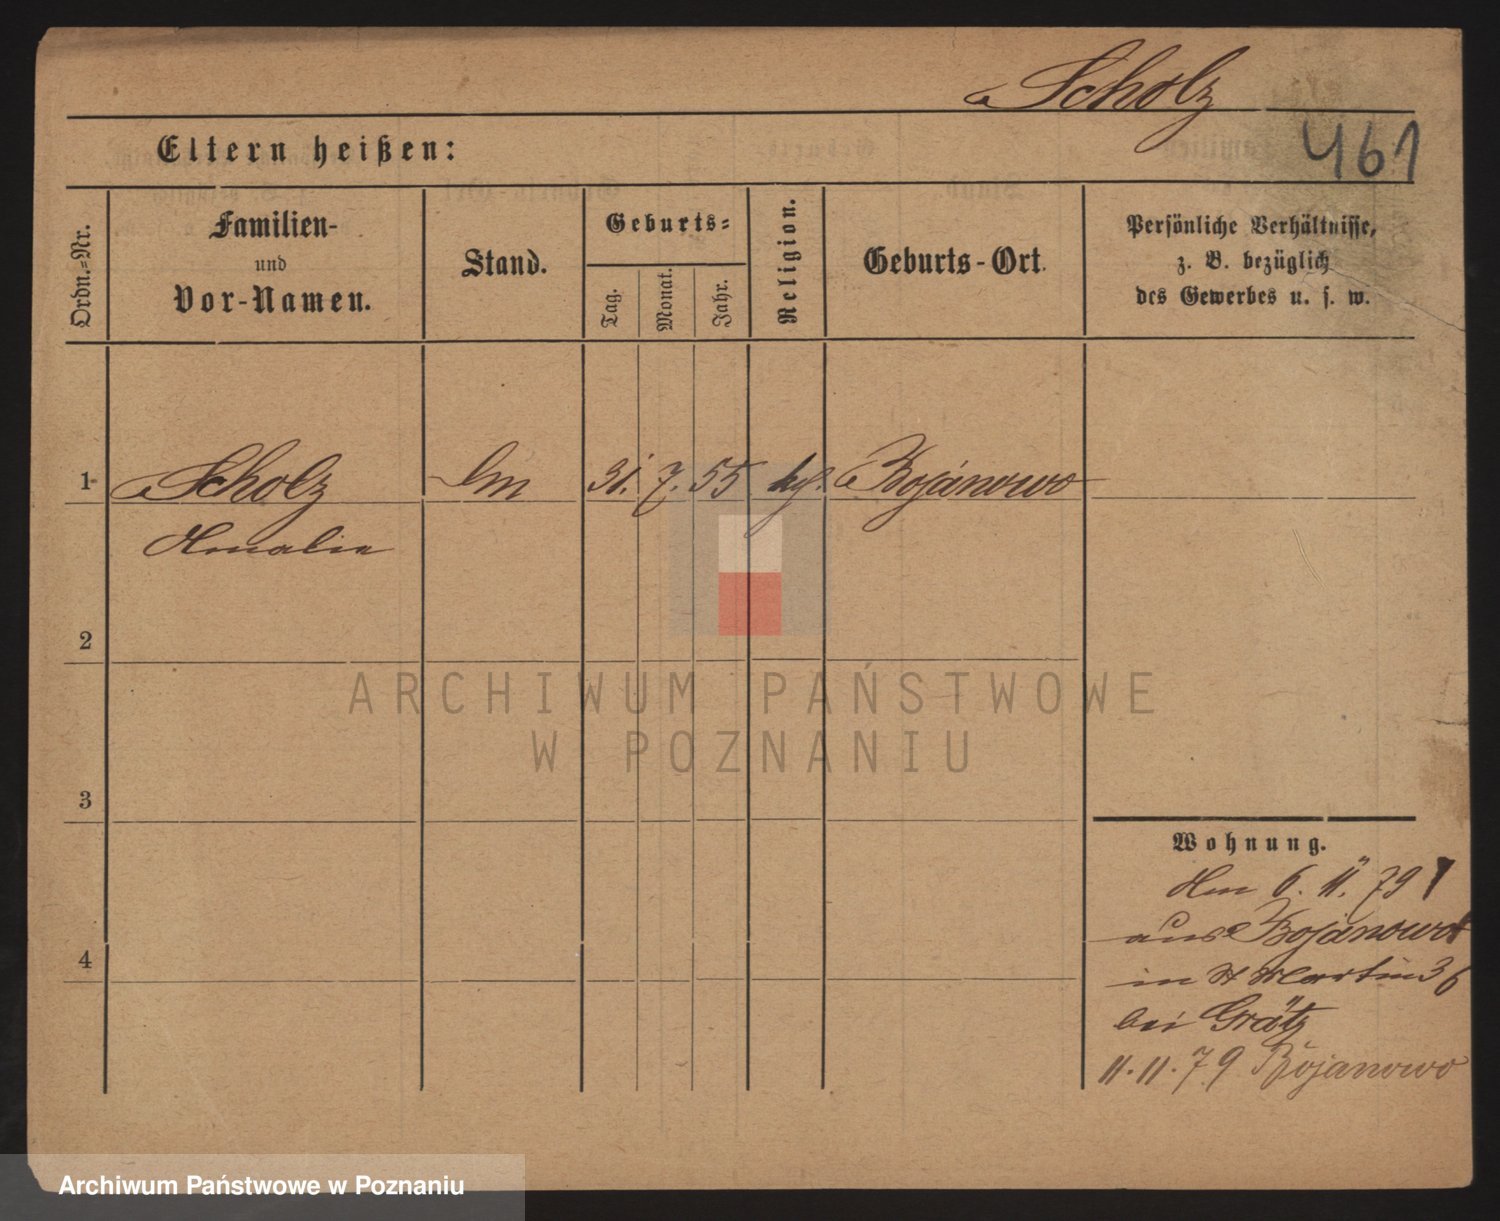 Scholz
461
Eltern heißen:
Ordn.=Nr.
Familien-
und
Vor-Namen.
Stand.
Geburts=
Tag.
Monat.
Jahr.
Religion.
Geburts-Ort.
Persönliche Verhältnisse,
z. B. bezüglich
des Gewerbes u. s. w.
1 Scholz 31. 7. 55 Bojanowo
Amalie
2
3
4
Wohnung.
Am 6. 11. 79
aus Bojanowo
in St Martin 36
bei Grätz
11. 11. 79 Bojanowo
ARCHIWUM PAŃSTWOWE
W POZNANIU
Archiwum Państwowe w Poznaniu